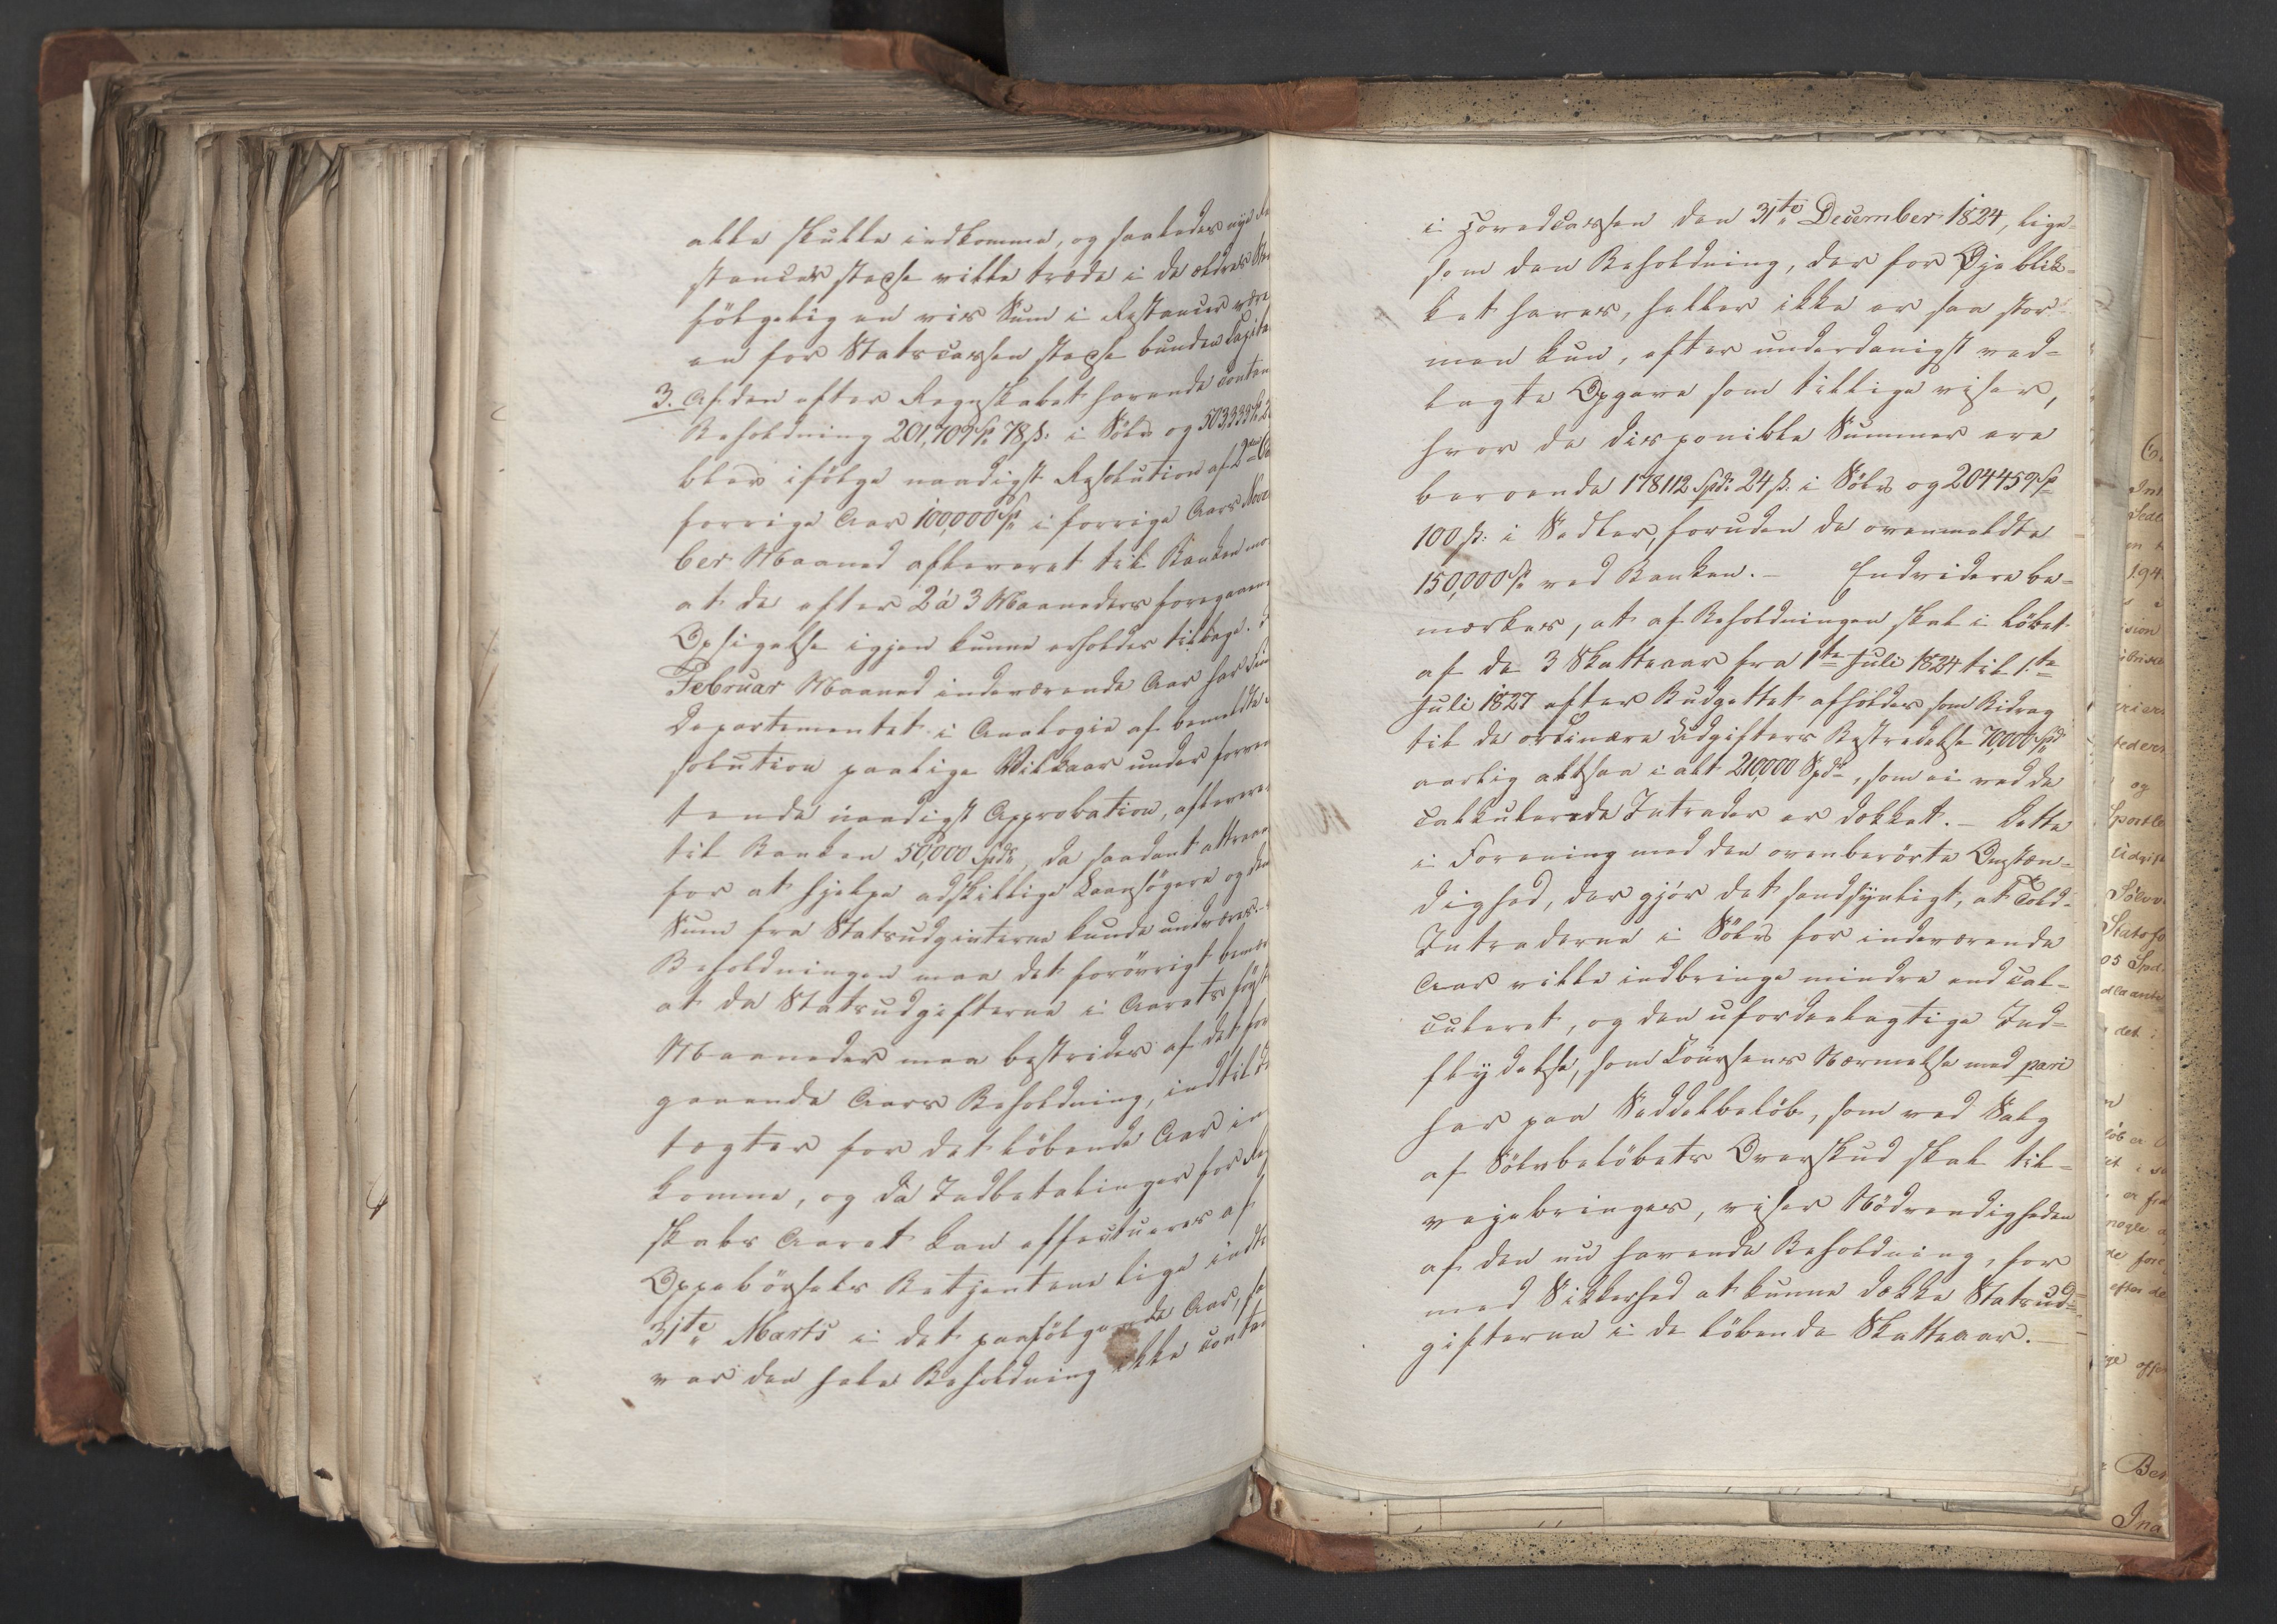 alle skulle indkomme, og saaledes nye
stancer stedse ville træde i de ældres
følgelig en vis Sum i Restancer være
en for Statscassen stedse bunden
3. Af den efter Regnskabet havende
Beholdning 201,709 Sp 78 ß: i Sølv og 503333
blev ifølge naadigst Resolution af 2den
forrige Aar 100,000 Sp i forrige Aars
ber Maaned afleveret til Banken
at de efter 2 à 3 Maaneders foregaaen
Opsigelse igjen kunne erholdes tilbage.
Februar Maaned indeværende Aar har
Departementet i Analogie af bemeldte
solution paalige Vilkaar under forven
tende naadigst Approbation, afleveret
til Banken 50,000 Spd, da saadant attraaes
for at hjelpe adskillige Laansøgere og
Sum fra Statsudgivterne kunde undværes.
Beholdningen maa det forøvrigt bemær
at da Statsudgifterne i Aarets først
Maaneder maa bestrides af det for
gaaende Aars Beholdning, indtil
tægter for det løbende Aar in
komme, og da Indbetalinger for
skabs Aaret kan effectueres af
Oppebørsels Betjentene lige indti
31te Marts i det paafølgende Aar,
var den hele Beholdning ikke
i Hovedcassen den 31te December 1824, lige-
som den Beholdning, der for Øjeblik-
ket haves, heller ikke er saa stor
men kun, efter underdanigst ved-
lagte Opgave som tillige viser,
hvor de disponible Summer ere
beroende 178112 Spd 24 ß. i Sølv og 204459 Sp
100 ß: i Sedler, foruden de ovenmeldte
150,000 Sp ved Banken. – Endvidere be-
mærkes, at af Beholdningen skal i Løbet
af de 3 Skatteaar fra 1te Juli 1824 til 1te
Juli 1827 efter Budgettet afholdes som Bidrag
til de ordinære Udgifters Bestridelse 70,000 Spd
aarlig altsaa i alt 210,000 Spd, som ei ved de
calculerede Intrader er dækket. – Dette
i Forening med den ovenberørte Omstæn-
dighed, der gjør det sandsynligt, at Told-
Intraderne i Sølv for indeværende
Aar ville indbringe mindre end cal-
culeret, og den ufordeelagtige Ind-
flydelse, som Coursens Nærmelse mod pari
har paa Seddelbeløb, som ved Salg
af Sølvbeløbets Overskud skal til-
vejebringes, viser Nødvendigheden
af den nu havende Beholdning, for
med Sikkerhed at kunne dække Statsud-
gifterne i de løbende Skatteaar. –